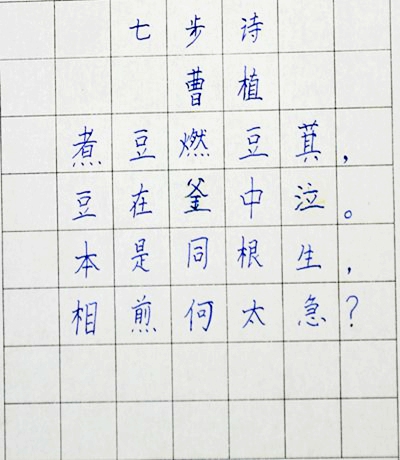 七步诗
曹植
煮豆燃豆萁,
豆在釜中泣。
本是同根生,
相煎何太急?